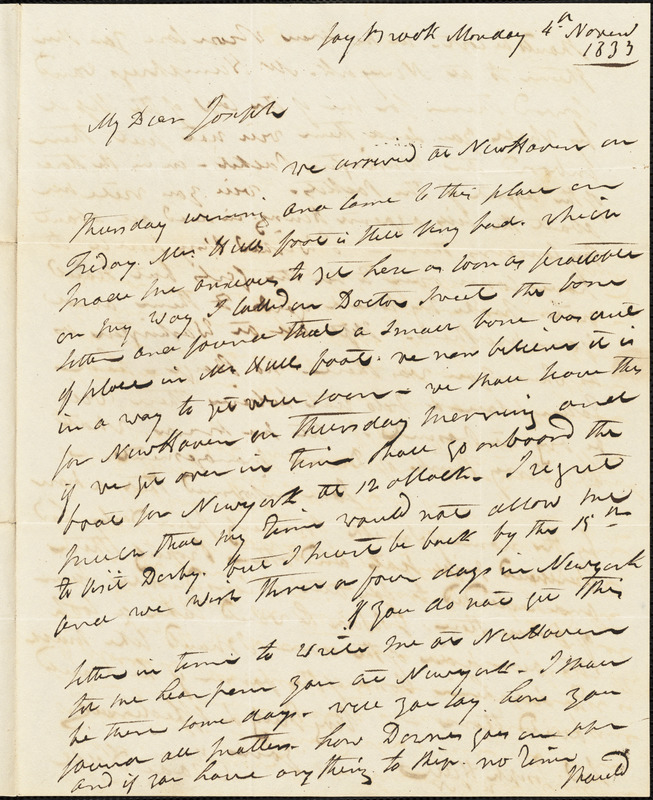 Say Brook Monday 4th Novem
1833
My Dear Joseph
we arrived at NewHaven on
Thursday evening and came to this place on
Friday. Mr. Hulls foot is still very bad. which
made me anxious to get here as soon as practable
on my way I called on Doctor Sweet the bone
setter and found that a small bone was out
of place in Mr Hulls foot. we now believe it is
in a way to get well soon - we shall leave this
for NewHaven on Thursday morning and
if we get over in time shall go onboard the
boat for Newyork at 12 oclock. I regret
much that my time would not allow me
to visit Derby. but I must be back by the 15th
and we wish three or four days in Newyork
If you do not get this
letter in time to write me at NewHaven
let me hear from you at Newyork - I shall
be there some days - will you say how you
found all matters. how goes on
and if you have any thing to ship. no time
should